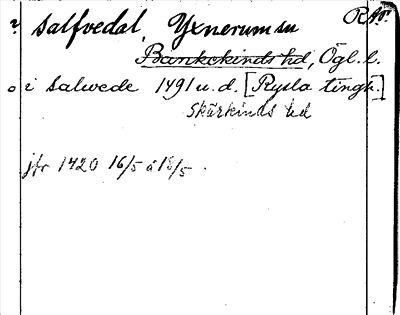 ? Salfvedal, Yxnerum sn
Bankekinds hd, Ögl. l.
o i Salwede 1491 u. d. [Rysla tingh.]
Skärkinds hd
jfr 1420 16/5 å 18/5.